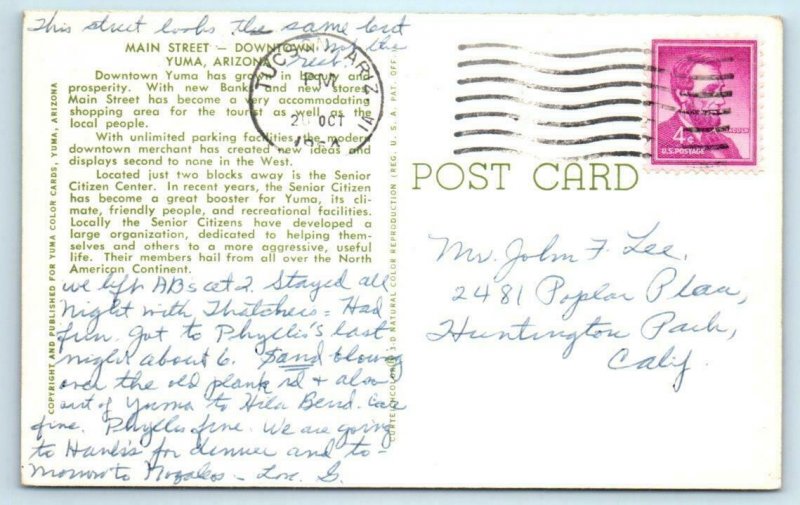 This street looks the same but
not the
rest.
MAIN STREET — DOWNTOWN
YUMA, ARIZONA
Downtown Yuma has grown in beauty and
prosperity. With new Banks and new stores,
Main Street has become a very accommodating
shopping area for the tourist as well as the
local people.
With unlimited parking facilities the modern
downtown merchant has created new ideas and
displays second to none in the West.
Located just two blocks away is the Senior
Citizen Center. In recent years, the Senior Citizen
has become a great booster for Yuma, its cli-
mate, friendly people, and recreational facilities.
Locally the Senior Citizens have developed a
large organization, dedicated to helping them-
selves and others to a more aggressive, useful
life. Their members hail from all over the North
American Continent.
we left AB's at 2. Stayed all
night with Thatchers = Had
fun. Got to Phyllis's last
night about 6. Sand blowing
over the old plank rd + also
out of Yuma to Hila Bend. Car
fine. Phyllis fine. We are going
to Hank's for dinner and to-
morrow to Nogales – Love. G.
COPYRIGHT AND PUBLISHED FOR YUMA COLOR CARDS, YUMA, ARIZONA
3-D NATURAL COLOR REPRODUCTION (REG. U.S.A. PAT. OFF.
TUCSON, ARIZ.
PM
OCT
4¢
LINCOLN
U.S. POSTAGE
POST CARD
Mr. John F. Lee,
2481 Poplar Place,
Huntington Park,
Calif.